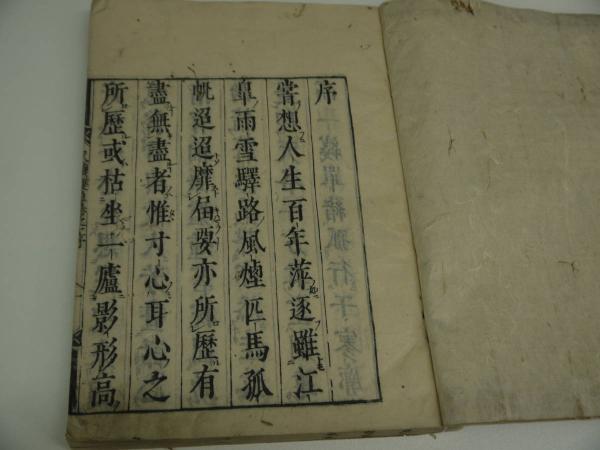 序
嘗想人生百年萍逐雖江
皐雨雪驛路風煙匹馬孤
帆迢迢靡届要亦所歷有
盡無盡者惟寸心耳心之
所歷或枯坐一廬影形高